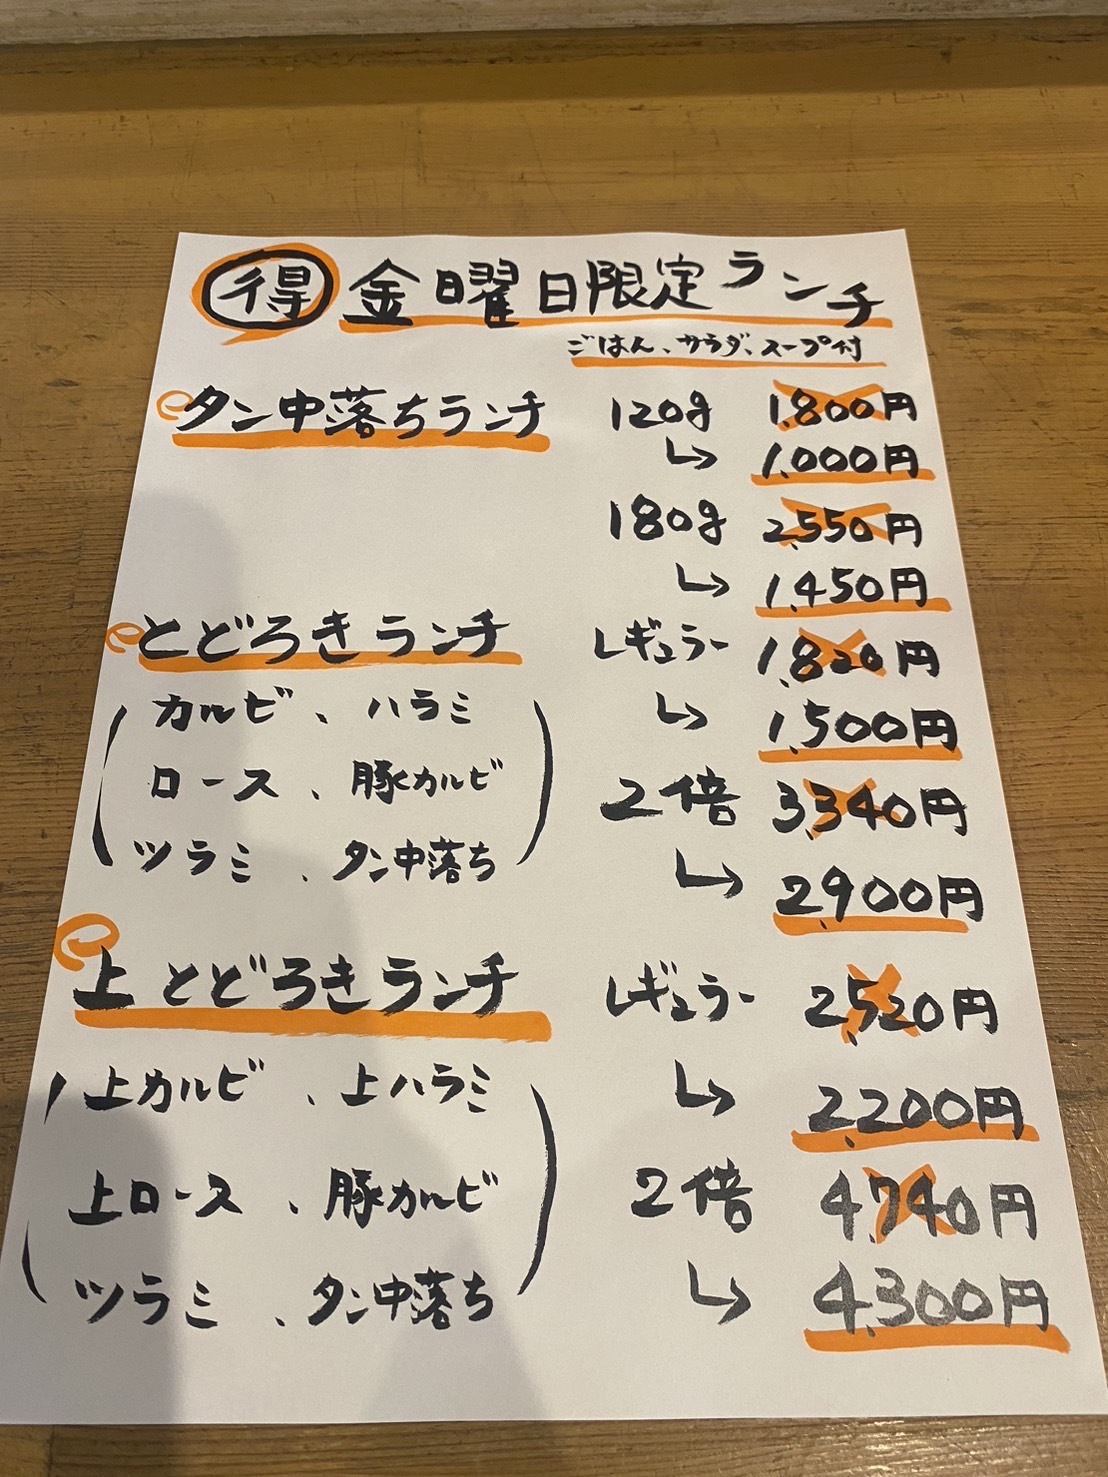 得 金曜日限定ランチ
ごはん、サラダ、スープ付
タン中落ちランチ 120g 1,800円
↳ 1,000円
180g 2,550円
↳ 1,450円
とどろきランチ レギュラー 1,820円
カルビ、ハラミ ↳ 1,500円
ロース、豚カルビ 2倍 3,340円
ツラミ、タン中落ち ↳ 2,900円
上とどろきランチ レギュラー 2,520円
上カルビ、上ハラミ ↳ 2,200円
上ロース、豚カルビ 2倍 4,740円
ツラミ、タン中落ち ↳ 4,300円